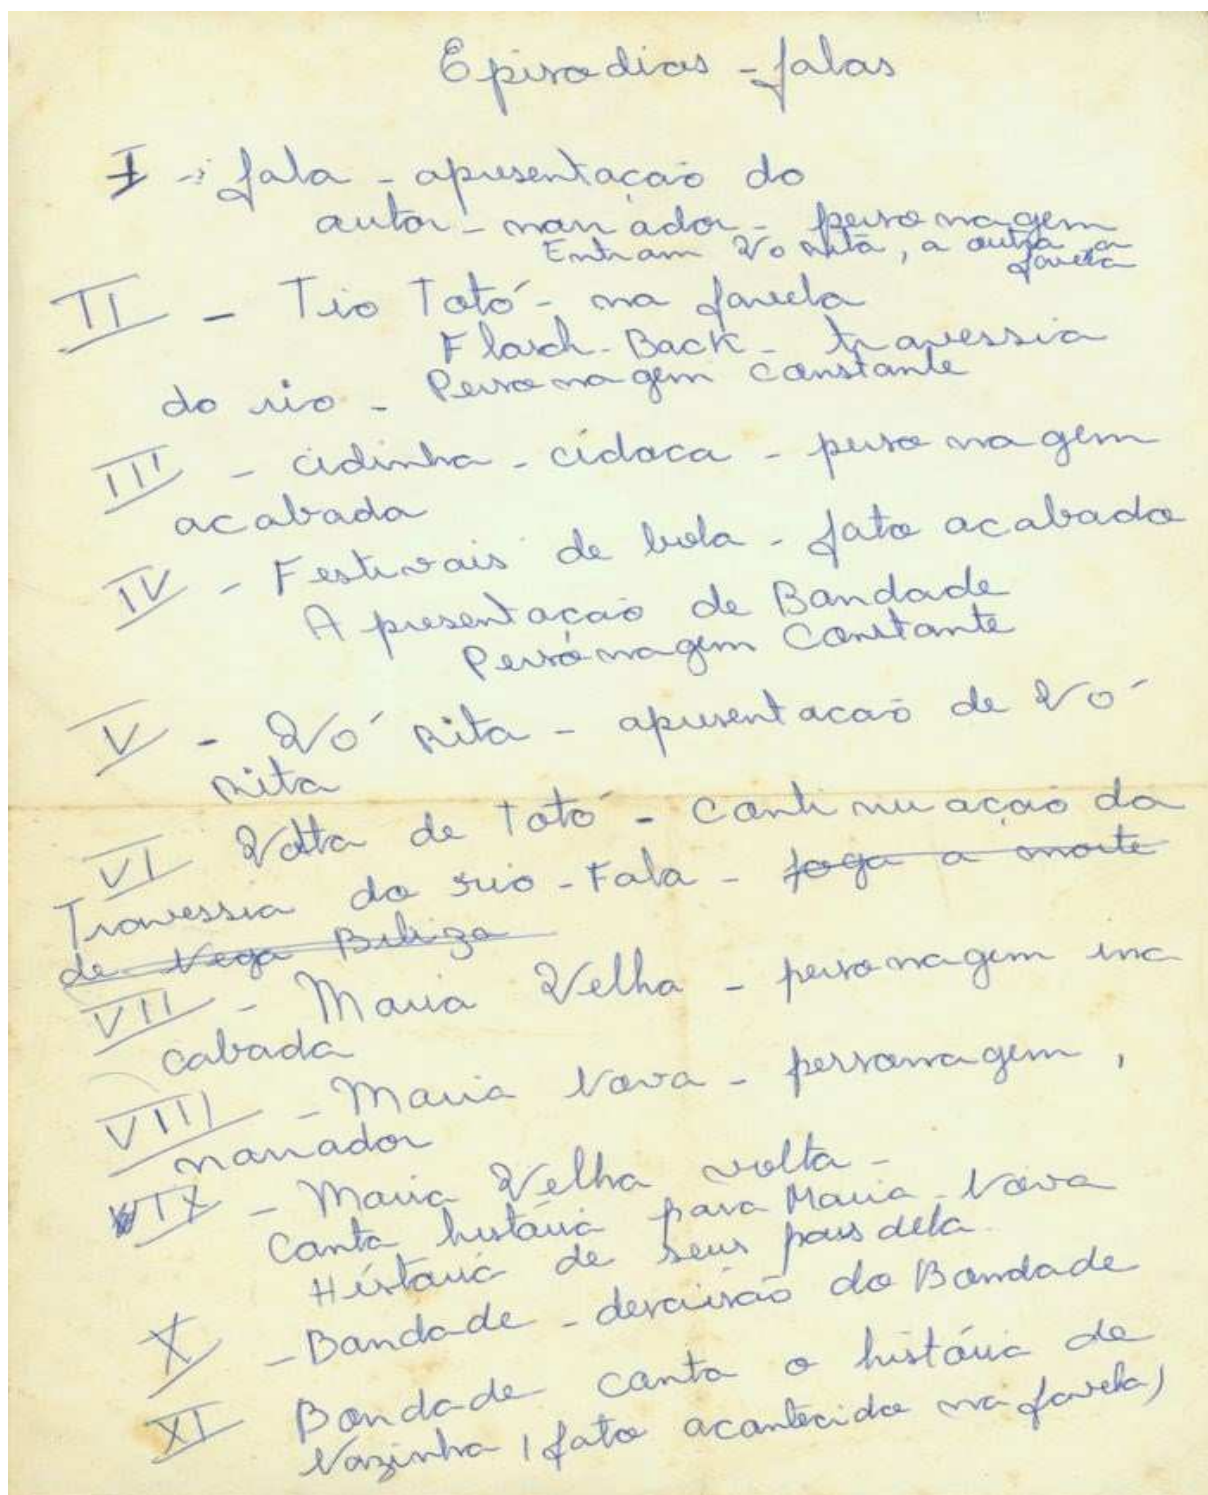 Episodios - falas
I - fala - apresentação do
autor - narrador - personagem
Entram Vó Rita, a outra, a
favela
II - Tio Totó - na favela
Flasch-Back - travessia
do rio - Personagem constante
III - cidinha - cidoca - personagem
acabada
IV - Festivais de bola - fato acabado
Apresentação de Bondade
Personagem Constante
V - Vó Rita - apresentação de Vó
Rita
VI Volta de Totó - Continuação da
Travessia do rio - Fala - joga a morte
de Nega
VII - Maria Velha - personagem ina
cabada
VIII - Maria Nova - personagem,
narrador
IX - Maria Velha volta -
Conta história para Maria-Nova
História de seus pais dela
X - Bondade - do Bondade
XI Bondade conta a história de
Nazinha (fato acontecido na favela)